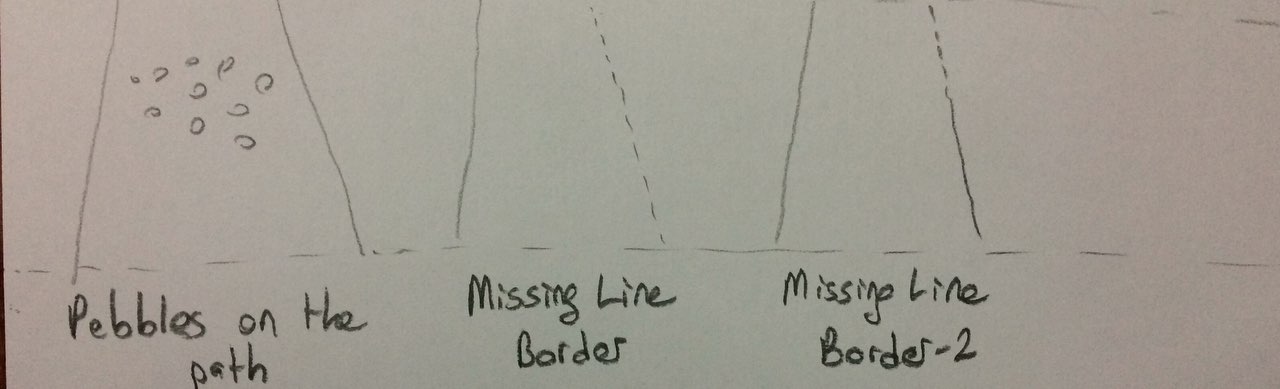 Pebbles on the
path
Missing Line
Border
Missing Line
Border-2